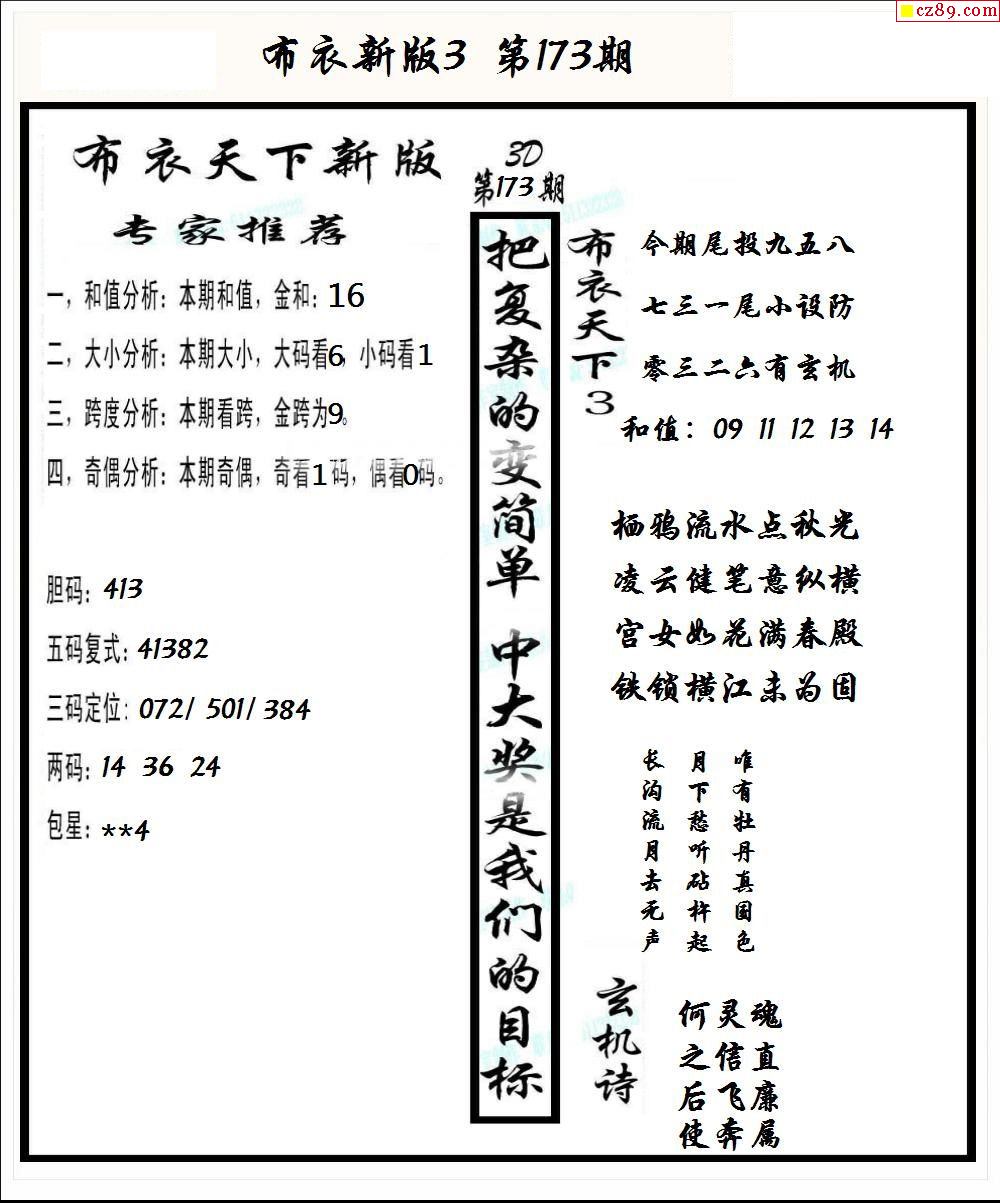 cz89.com
布衣新版3 第173期
布衣天下新版
专家推荐
一，和值分析：本期和值，金和：16
二，大小分析：本期大小，大码看6，小码看1
三，跨度分析：本期看跨，金跨为9。
四，奇偶分析：本期奇偶，奇看1码，偶看0码。
胆码：413
五码复式：41382
三码定位：072/ 501/ 384
两码：14 36 24
包星：**4
3D
第173期
把复杂的变简单 中大奖是我们的目标
布衣天下3
今期尾投九五八
七三一尾小设防
零三二六有玄机
和值：09 11 12 13 14
栖鸦流水点秋光
凌云健笔意纵横
宫女如花满春殿
铁锁横江未为固
唯有牡丹真国色
月下愁听砧杵起
长沟流月去无声
玄机诗
何灵魂
之信直
后飞廉
使奔属